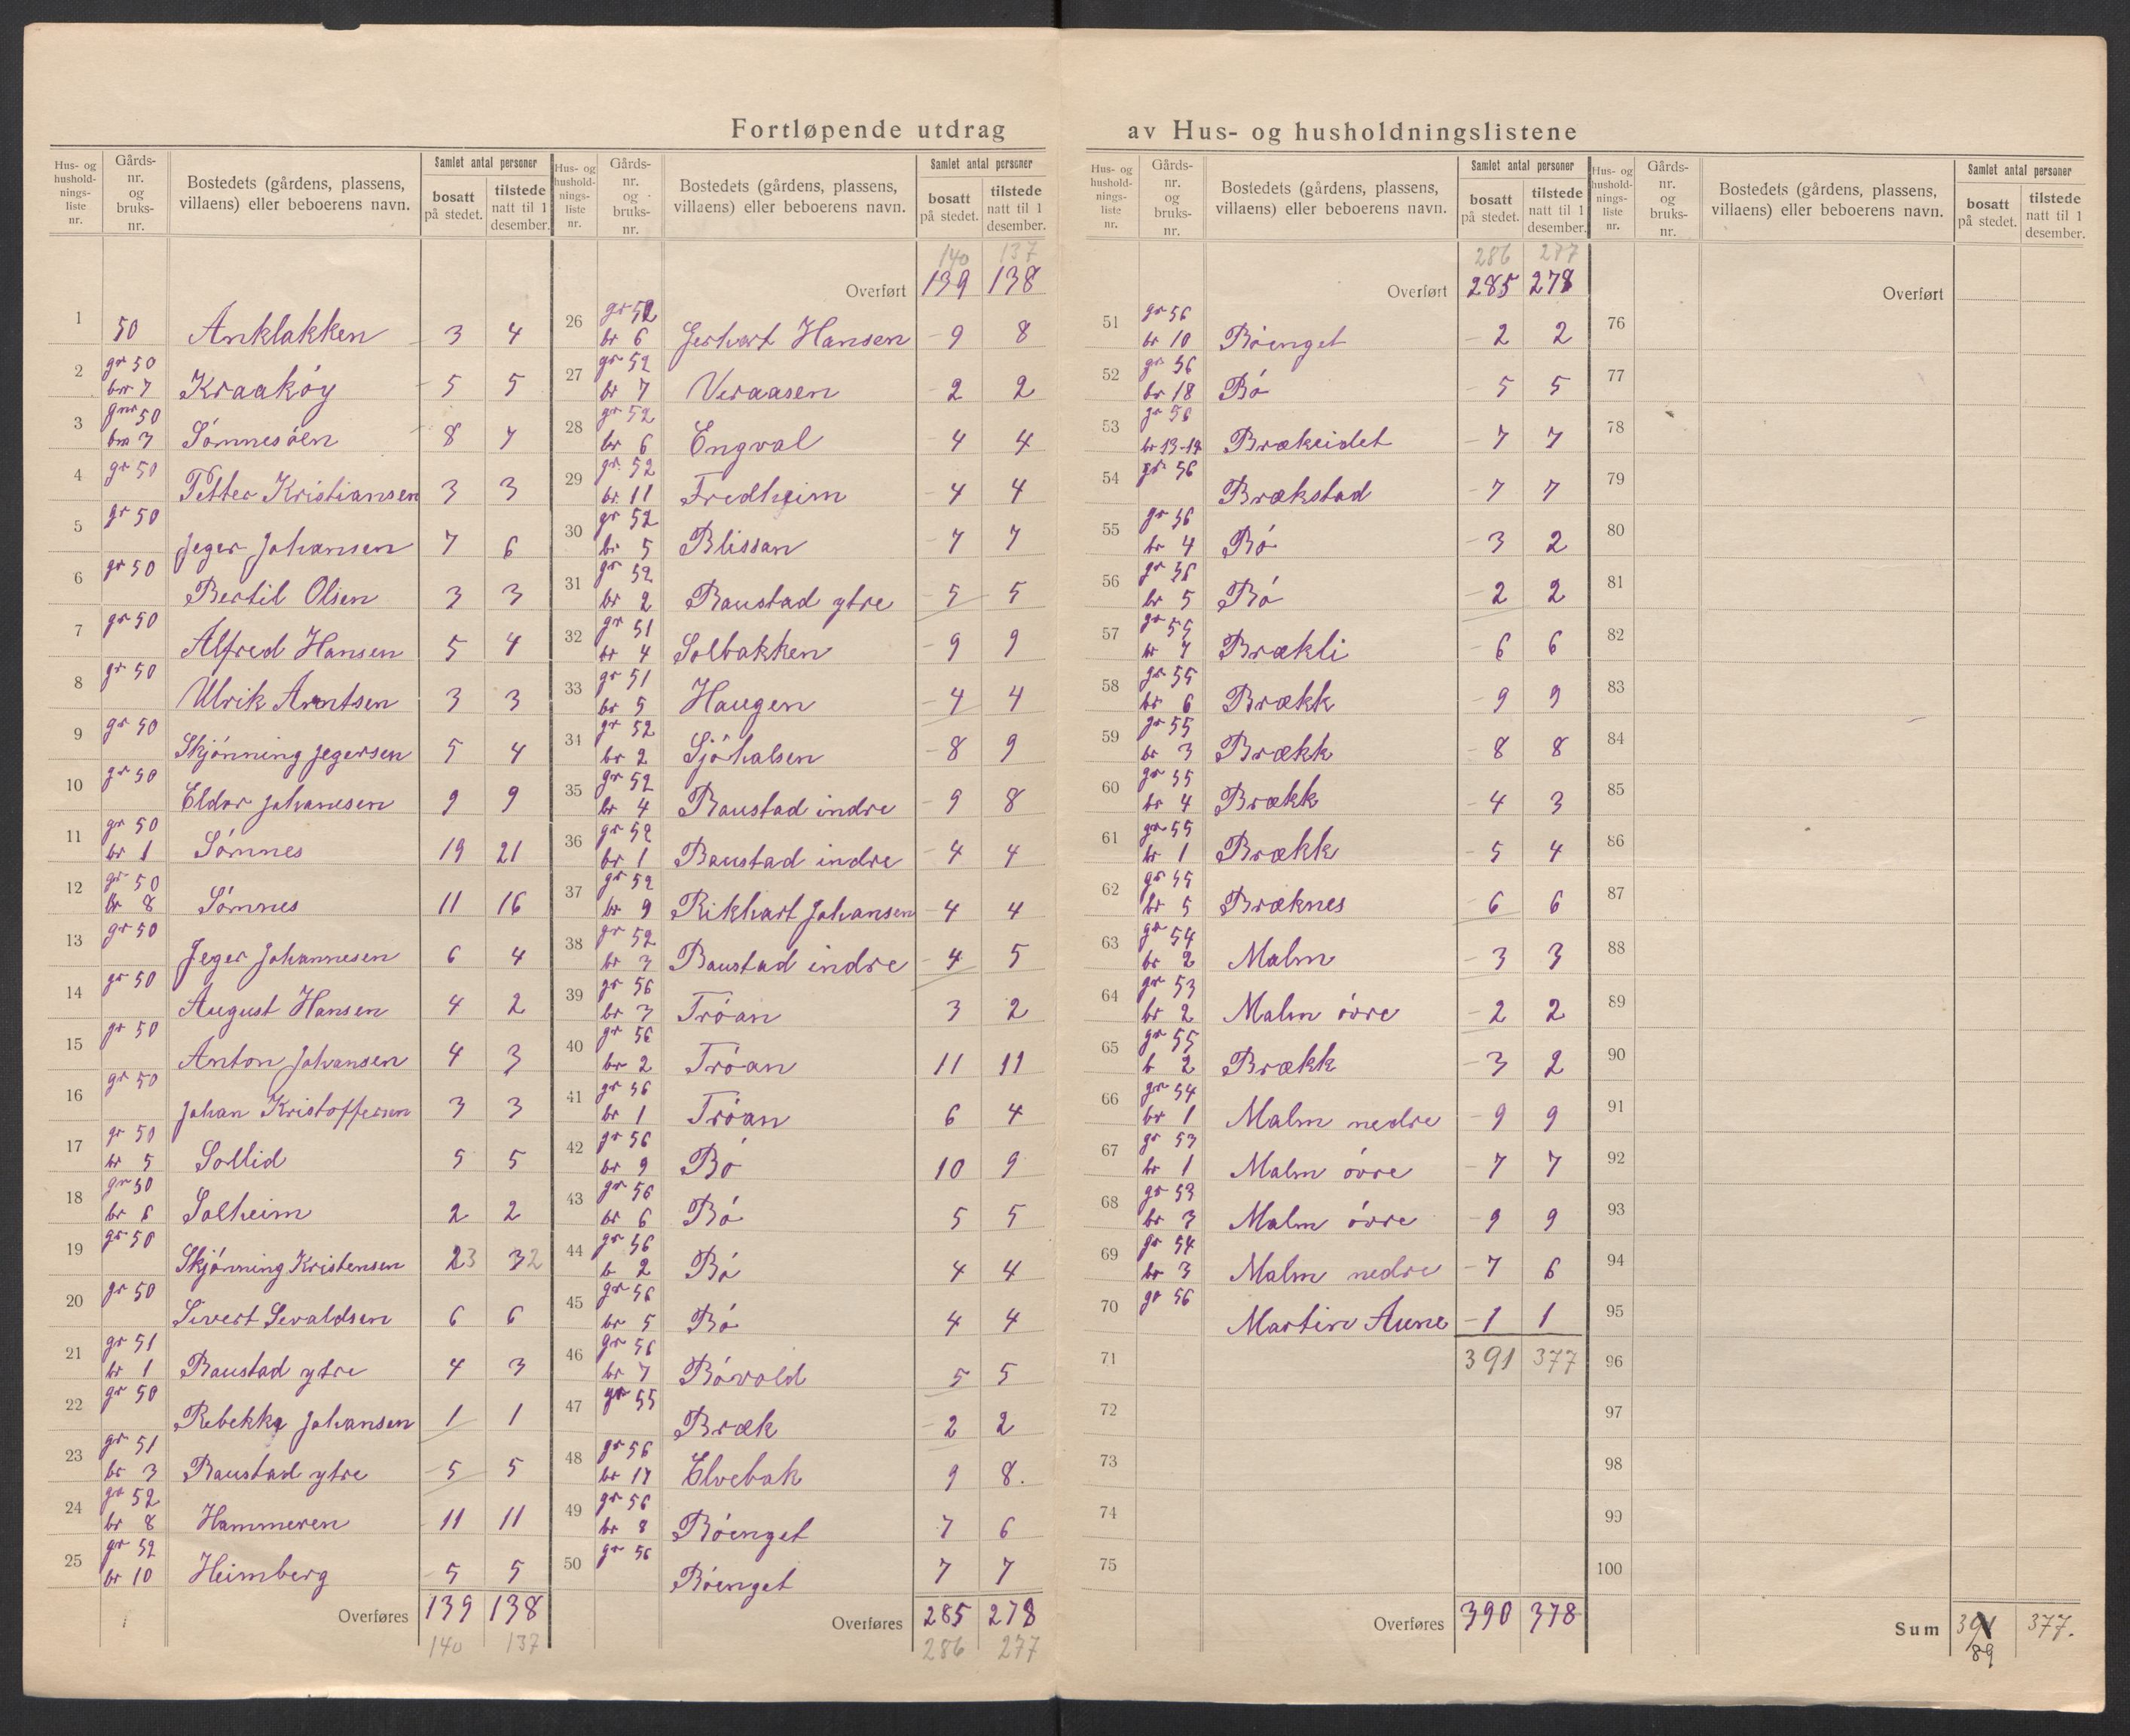 Fortløpende utdrag av Hus- og husholdningslistene
Hus- og husholdningsliste nr. | Gårds- nr. og bruks- nr. | Bostedets (gårdens, plassens, villaens) eller beboerens navn. | Samlet antal personer bosatt på stedet. | tilstede natt til 1 desember.
1 50 Anklakken 3 4
2 gr 50 br 7 Kraakøy 5 5
3 gnr 50 brn 3 Sømnesøen 8 7
4 gr 50 Petter Kristiansen 3 3
5 gr 50 Jeger Johansen 7 6
6 gr 50 Bertil Olsen 3 3
7 gr 50 Alfred Hansen 5 4
8 gr 50 Ulrik Arntsen 3 3
9 gr 50 Skjønning Jegersen 5 4
10 gr 50 Eldor Johansen 9 9
11 gr 50 br 1 Sømnes 19 21
12 gr 50 br 8 Sømnes 11 16
13 gr 50 Jeger Johannesen 6 4
14 gr 50 August Hansen 4 2
15 gr 50 Anton Johansen 4 3
16 gr 50 Johan Kristoffersen 3 3
17 gr 50 br 5 Sollid 5 5
18 gr 50 br 6 Solheim 2 2
19 gr 50 Skjønning Kristensen 23 32
20 gr 50 Sivert Sevaldsen 6 6
21 gr 51 br 1 Raustad ytre 4 3
22 gr 50 Rebekka Johansen 1 1
23 gr 51 br 3 Raustad ytre 5 5
24 gr 52 br 8 Hammeren 11 11
25 gr 52 br 10 Heimberg 5 5
Overføres 139 138
140 137
Hus- og husholdningsliste nr. | Gårds- nr. og bruks- nr. | Bostedets (gårdens, plassens, villaens) eller beboerens navn. | Samlet antal personer bosatt på stedet. | tilstede natt til 1 desember.
140 137
Overført 139 138
26 gr 52 br 6 Gerhart Hansen 9 8
27 gr 52 br 7 Veraasen 2 2
28 gr 52 br 6 Engval 4 4
29 gr. 52 br. 11 Fredheim 4 4
30 gr 52 br 5 Blissan 7 7
31 gr 52 br 2 Raustad ytre 5 5
32 gr 51 br 4 Solbakken 9 9
33 gr 51 br 5 Haugen 4 4
34 gr 52 br 2 Sjøhalsen 8 9
35 gr 52 br 4 Raustad indre 9 8
36 gr 52 br 1 Raustad indre 4 4
37 gr 52 br 9 Rikhart Johansen 4 4
38 gr 52 br 3 Raustad indre 4 5
39 gr 56 br 3 Trøan 3 2
40 gr 56 br 2 Trøan 11 11
41 gr 56 br 1 Trøan 6 4
42 gr 56 br 9 Bø 10 9
43 gr 56 br 6 Bø 5 5
44 gr 56 b 2 Bø 4 4
45 gr 56 br 5 Bø 4 4
46 gr 56 br 7 Bøvold 5 5
47 gr 55 Bræk 2 2
48 gr 56 br 17 Elvebak 9 8.
49 gr 56 br 8 Bøenget 7 6
50 gr 56 Bøenget 7 7
Overføres 285 278
286 277
Hus- og husholdningsliste nr. | Gårds- nr. og bruks- nr. | Bostedets (gårdens, plassens, villaens) eller beboerens navn. | Samlet antal personer bosatt på stedet. | tilstede natt til 1 desember.
286 277
Overført 285 278
51 gr 56 br 10 Bøenget 2 2
52 gr 56 br 18 Bø 5 5
53 gr 56 br 13-14 Brækeidet 7 7
54 gr 56 Brækstad 7 7
55 gr 56 br 4 Bø 3 2
56 gr 56 br 5 Bø 2 2
57 gr 55 br 7 Brækli 6 6
58 gr 55 br 6 Brækk 9 9
59 gr 55 br 3 Brækk 8 8
60 gr 55 br 4 Brækk 4 3
61 gr 55 br 1 Brækk 5 4
62 gr 55 br 5 Bræknes 6 6
63 gr 54 br 2 Malm 3 3
64 gr 53 br 2 Malm øvre 2 2
65 gr 55 b 2 Brækk 3 2
66 gr 54 br 1 Malm nedre 9 9
67 gr 53 br 1 Malm øvre 7 7
68 gr 53 br 3 Malm øvre 9 9
69 gr 54 br 3 Malm nedre 7 6
70 gr 56 Martin Aune 1 1
71 391 377
72
73
74
75
Overføres 390 378
Hus- og husholdningsliste nr. | Gårds- nr. og bruks- nr. | Bostedets (gårdens, plassens, villaens) eller beboerens navn. | Samlet antal personer bosatt på stedet. | tilstede natt til 1 desember.
Overført
76
77
78
79
80
81
82
83
84
85
86
87
88
89
90
91
92
93
94
95
96
97
98
99
100
Sum 391 377.
89